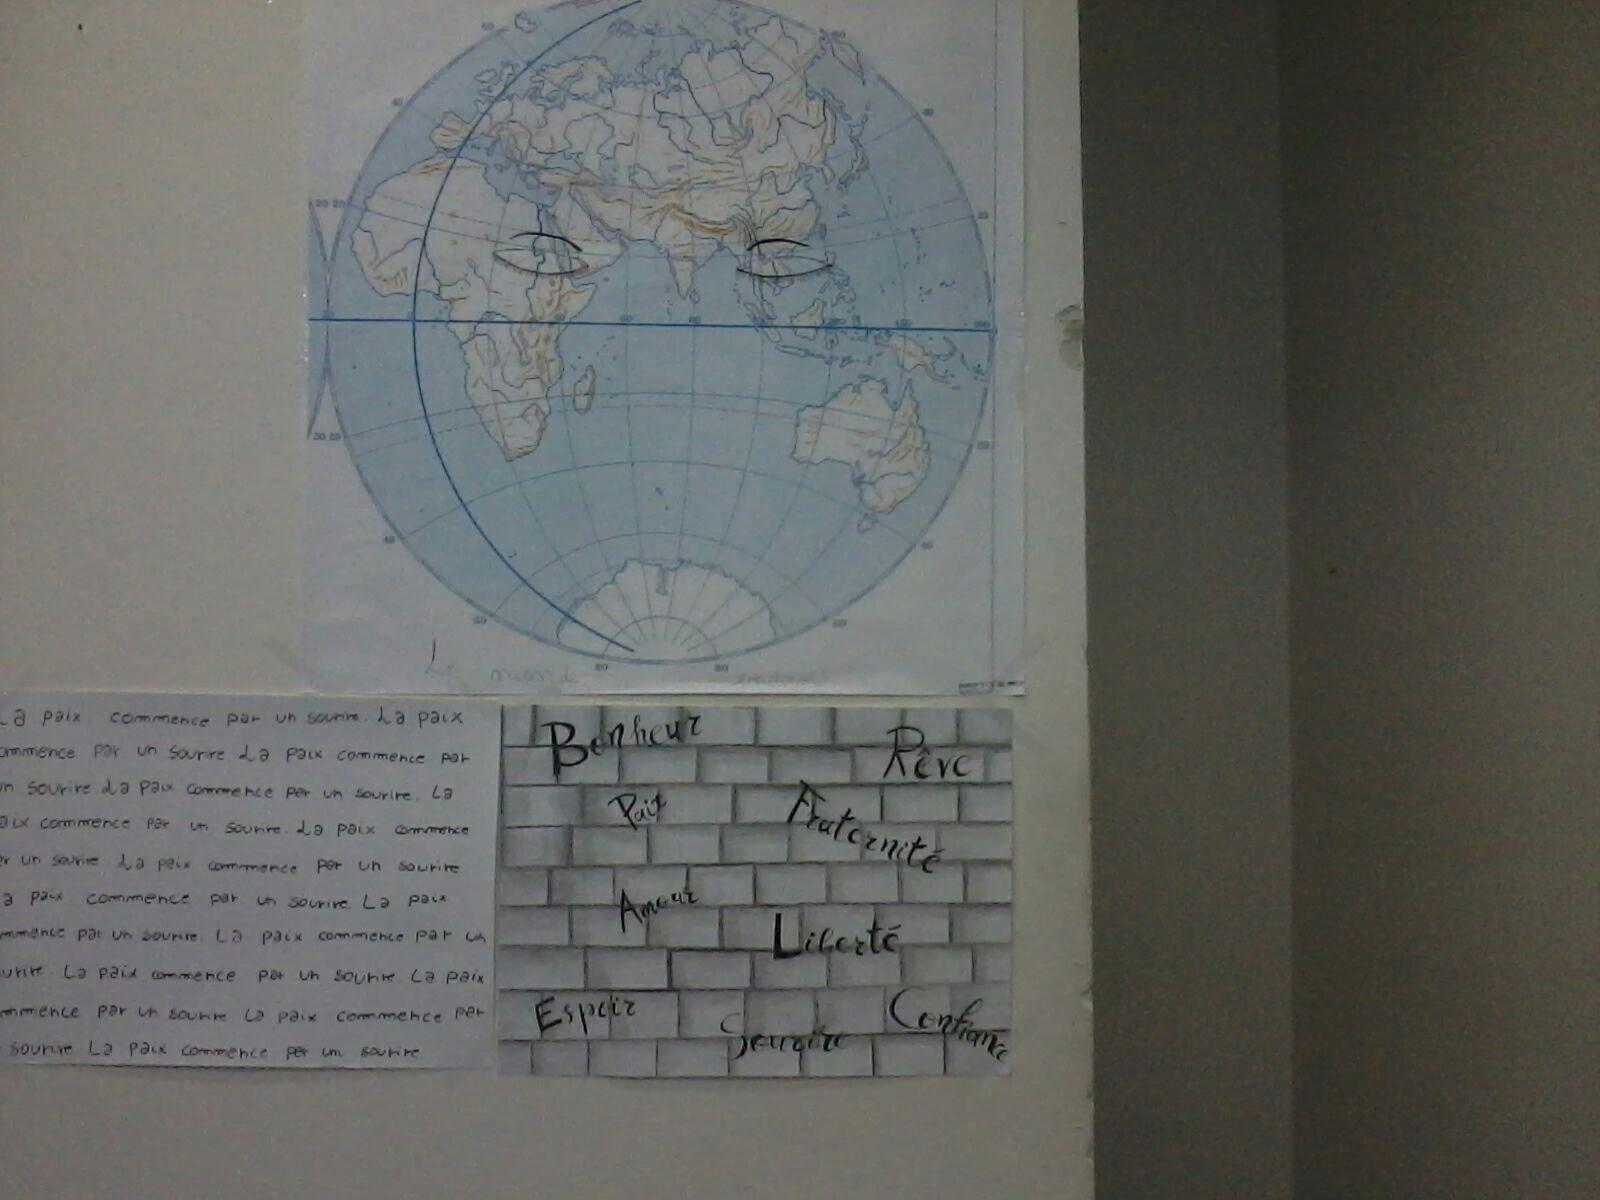 Le monde
La paix commence par un sourire. La paix
ommence par un sourire La paix commence par
un sourire La paix commence par un sourire. La
aix commence par un sourire. La paix commence
er un sourire La paix commence par un sourire
a paix commence par un sourire La paix
mmence par un sourire. La paix commence par un
urire. La paix commence par un sourire. La paix
mmence par un sourire La paix commence par
sourire La paix commence par um sourire
Bonheur
Rêve
Paix
Fraternité
Amour
Liberté
Espoir
Sourire
Confiance